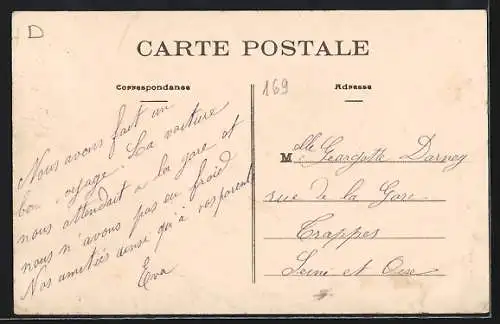 D
CARTE POSTALE
Correspondance
169
Adresse
Nous avons fait un
bon voyage. La voiture
nous attendait à la gare et
nous n'avons pas eu froid
Nos amitiés ainsi qu'à vos parents
Eva
Mlle Georgette Darney
rue de la Gare
Trappes
Seine et Oise